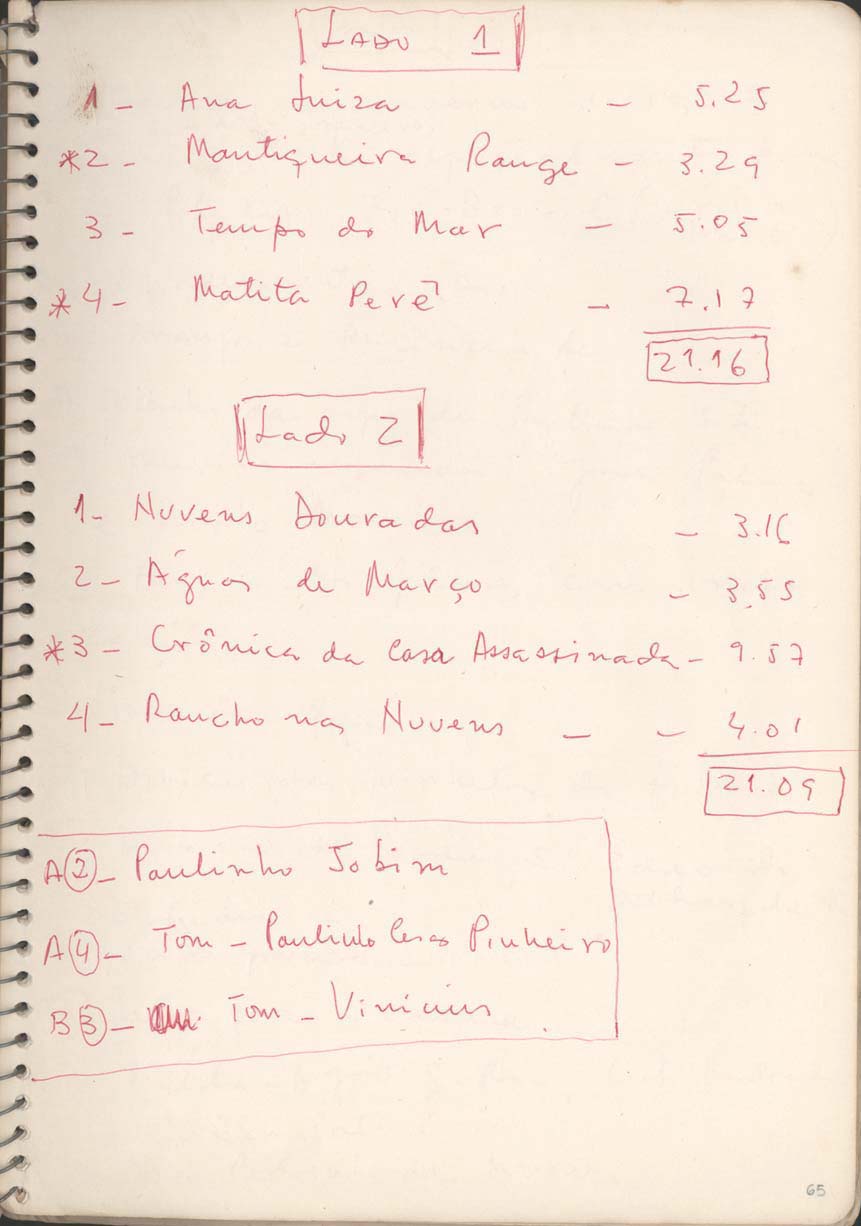 LADO 1
1 - Ana Luiza - 5.25
*2 - Mantiqueira Range - 3.29
3 - Tempo do Mar - 5.05
*4 - Matita Perê - 7.17
21.16
Lado 2
1 - Nuvens Douradas - 3.16
2 - Águas de Março - 3.55
*3 - Crônica da Casa Assassinada - 9.57
4 - Rancho nas Nuvens - - 4.01
21.09
A 2 - Paulinho Jobim
A 4 - Tom - Paulinho Cesar Pinheiro
B 3 - Tom - Vinicius
65